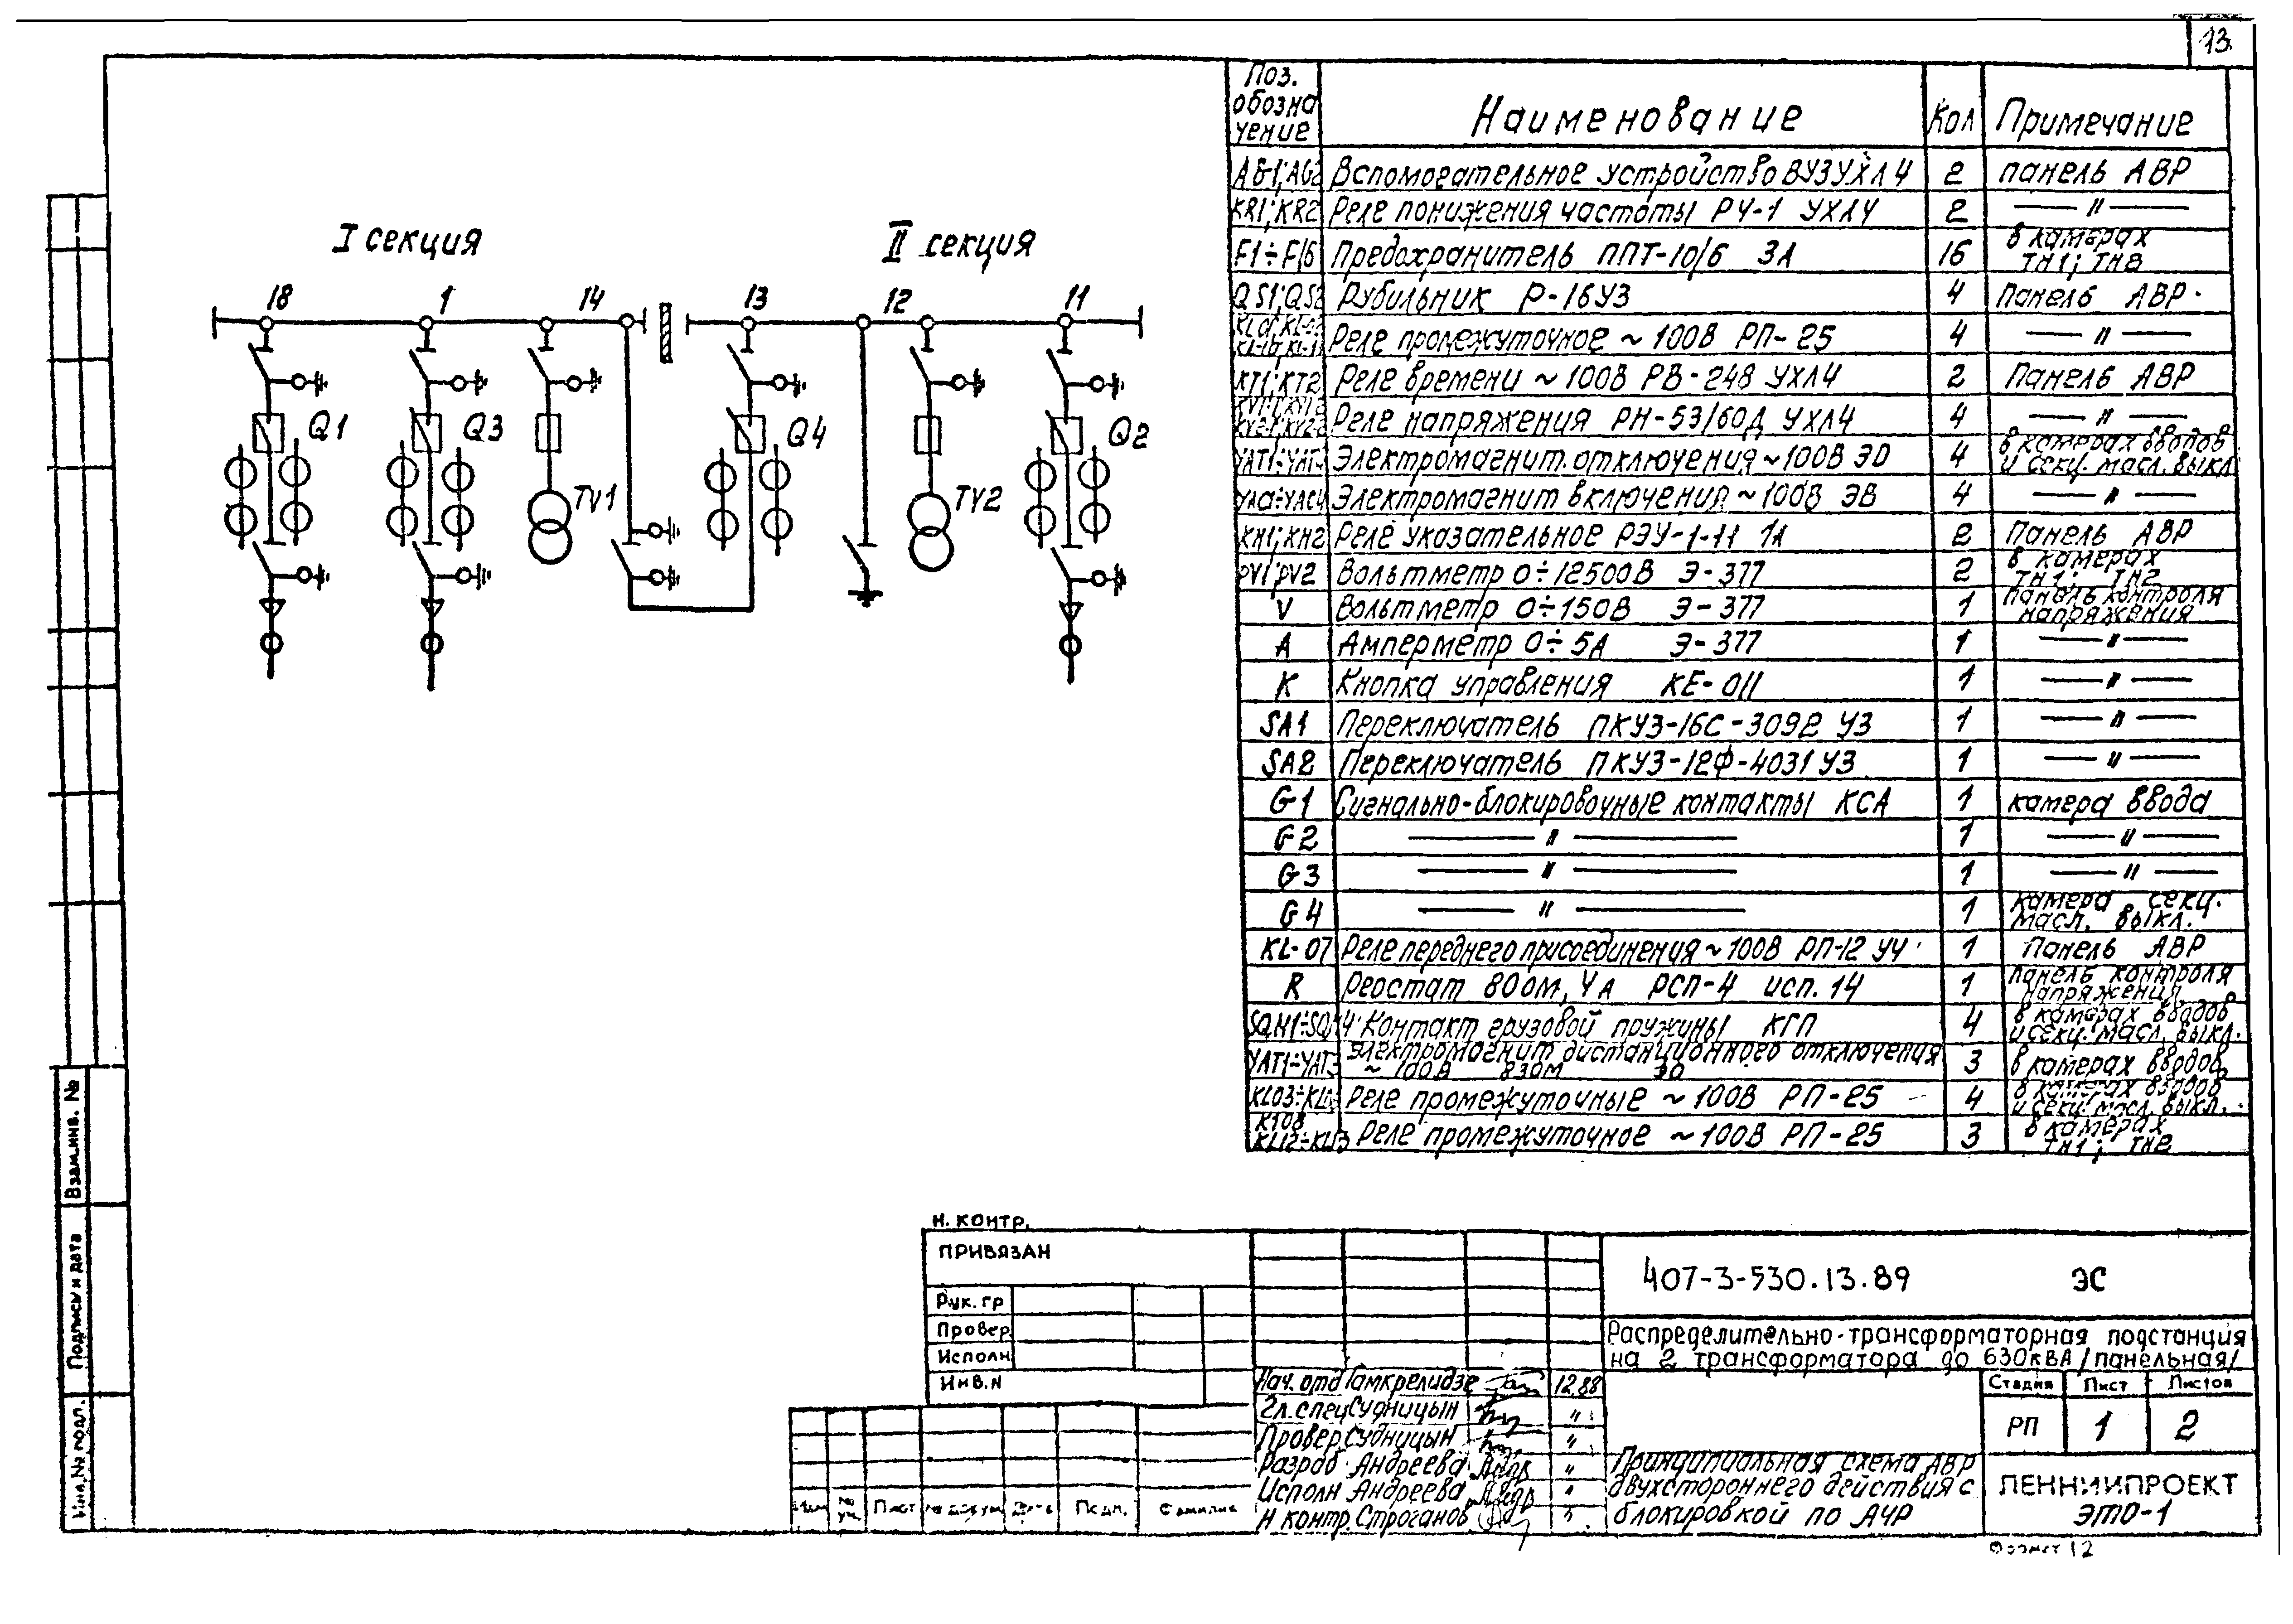 13
I секция
II секция
18 1 14 13 12 11
Q1 Q3 TV1 Q4 TV2 Q2
Поз. обозна чение Наименование Кол Примечание
AG1;AG2 Вспомогательное устройство ВУЗУХЛ4 2 панель АВР
KR1;KR2 Реле понижения частоты РЧ-1 УХЛ4 2 — " —
F1÷F16 Предохранитель ППТ-10/6 3А 16 в камерах ТН1; ТН2
QS1;QS2 Рубильник Р-16У3 4 Панель АВР.
Реле промежуточное ~100В РП-25 4 — " —
KT1;KT2 Реле времени ~100В РВ-248 УХЛ4 2 Панель АВР
Реле напряжения РН-53/60Д УХЛ4 4 — " —
Электромагнит.отключения ~100В ЭО 4 в камерах вводов и секц. масл. выкл
Электромагнит включения ~100В ЭВ 4 — " —
KH1;KH2 Реле указательное РЭУ-1-11 1А 2 Панель АВР
PV1;PV2 Вольтметр 0÷12500В Э-377 2 в камерах ТН1; ТН2
V Вольтметр 0÷150В Э-377 1 Панель контроля напряжения
A Амперметр 0÷5А Э-377 1 — " —
K Кнопка управления КЕ-011 1 — " —
SA1 Переключатель ПКУ3-16С-3092 У3 1 — " —
SA2 Переключатель ПКУ3-12Ф-4031 У3 1 — " —
G1 Сигнально-блокировочные контакты КСА 1 камера ввода
G2 — " — 1 — " —
G3 — " — 1 — " —
G4 — " — 1 камера секц. масл. выкл.
KL-07 Реле переднего присоединения ~100В РП-12 У4 1 Панель АВР
R Реостат 80Ом, 4А РСП-4 исп.14 1 Панель контроля напряжения
Контакт грузовой пружины КГП 4 в камерах вводов и секц. масл. выкл.
Электромагнит дистанционного отключения ~100В 830М ЭО 3 в камерах вводов
Реле промежуточные ~100В РП-25 4 в камерах вводов и секц. масл. выкл.
Реле промежуточное ~100В РП-25 3 в камерах ТН1; ТН2
Взам.инв. №
Подпись и дата
Инв.№ подл.
Н. КОНТР.
ПРИВЯЗАН
Рук. гр
Провер.
Исполн
Инв.N
407-3-530.13.89 ЭС
Распределительно-трансформаторная подстанция
на 2 трансформатора до 630кВА /панельная/
Нач.отд Гамкрелидзе 12.88
Гл.спец Судницын "
Провер. Судницын "
Разраб. Андреева "
Исполн Андреева "
Н контр. Строганов "
Стадия Лист Листов
РП 1 2
Принципиальная схема АВР
двухстороннего действия с
блокировкой по АЧР
ЛЕННИИПРОЕКТ
ЭТО-1
Изм № уч. Лист № докум Дата Подп. Фамилия
Формат 12